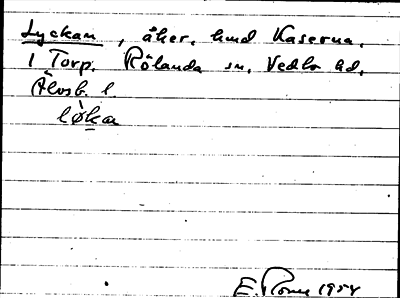 Lyckan, åker. hmd Kaserna.
i Torp. Rölanda sn. Vedbo hd.
Älvsb. l.
lø̀kan
E. 1954